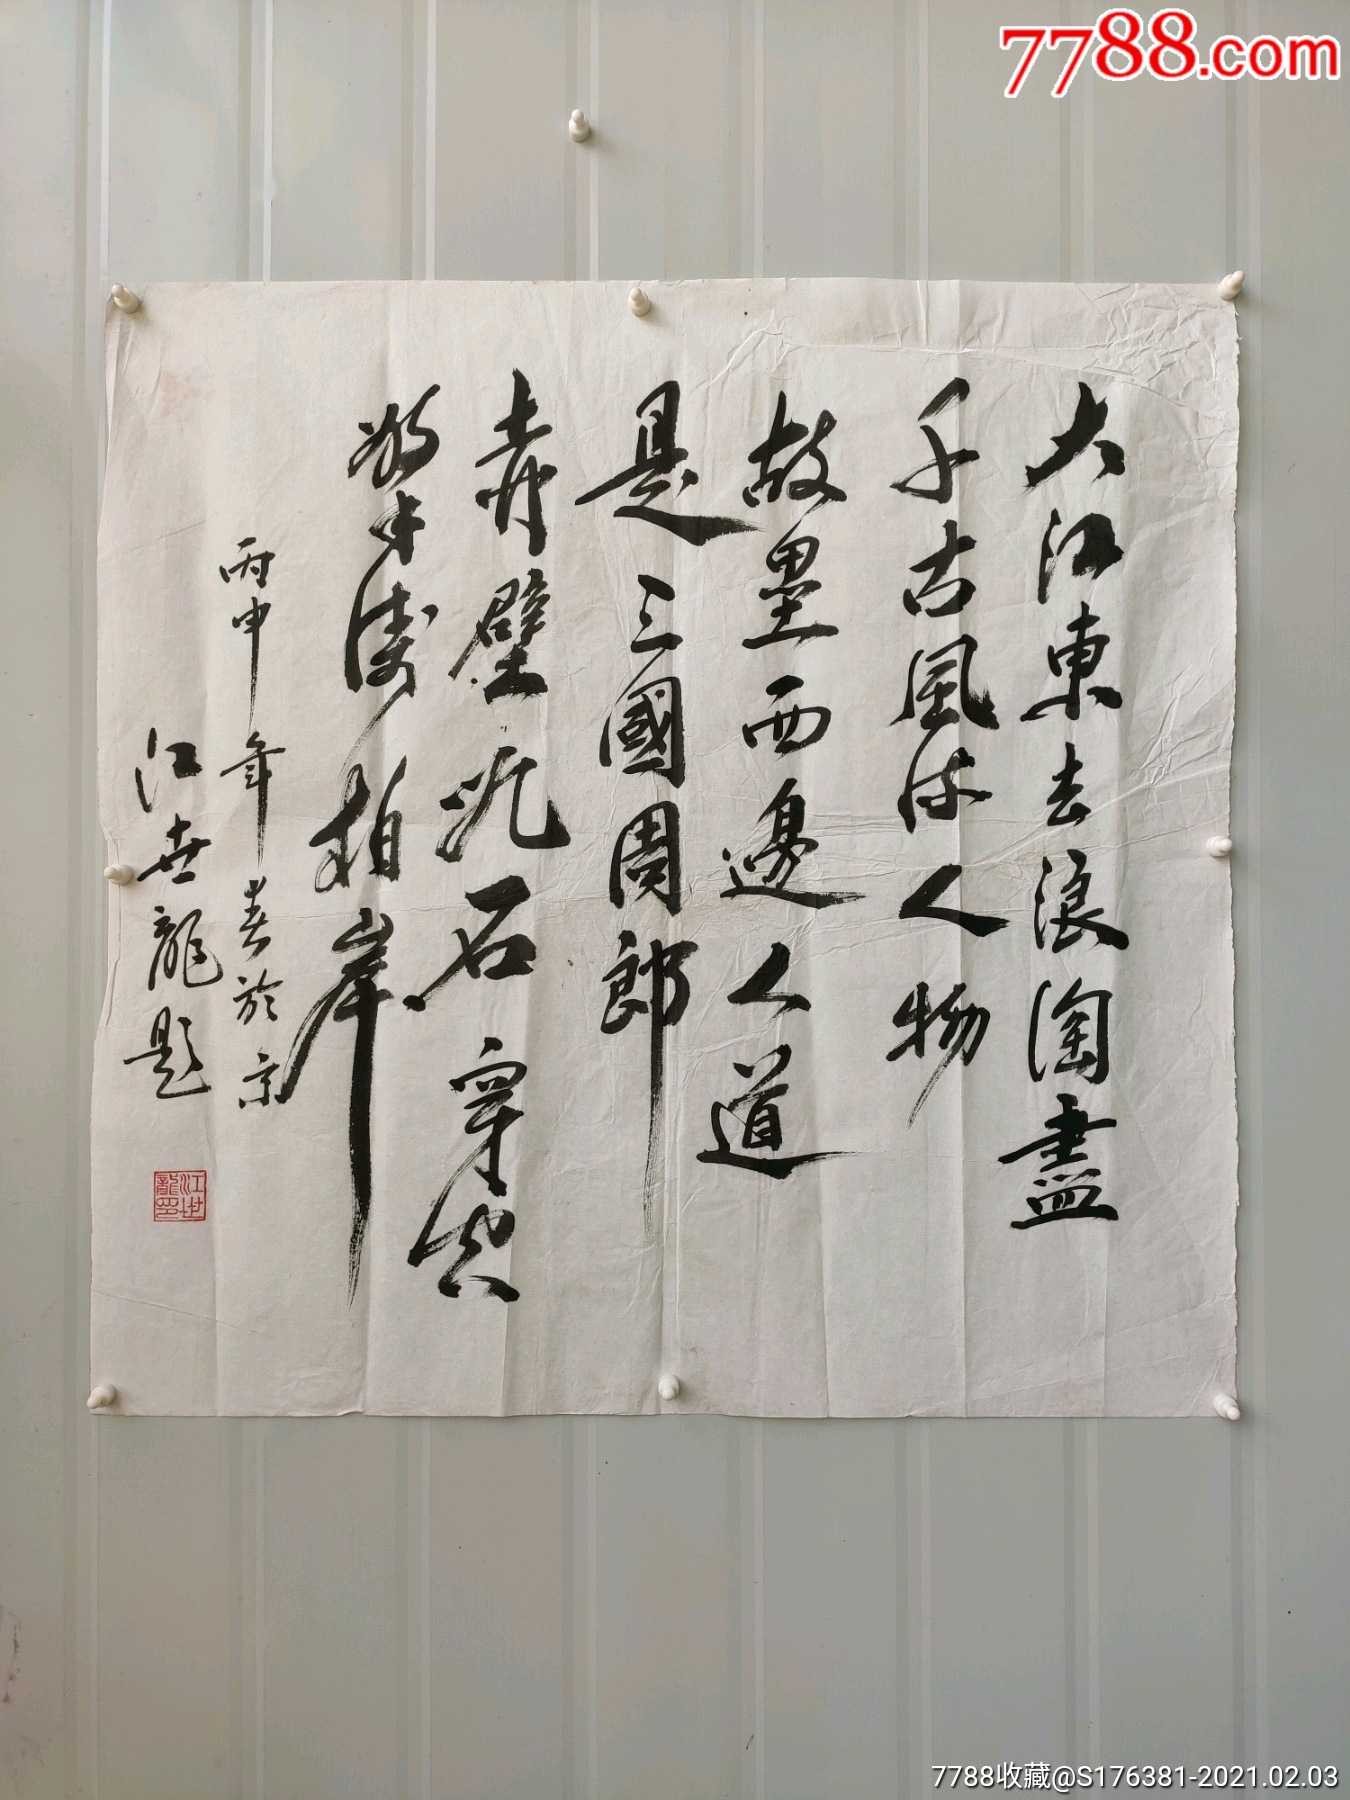 7788.com
大江東去浪淘盡
千古風流人物
故壘西邊人道
是三國周郎
赤壁亂石穿空
驚濤拍岸
丙申年春於京
江世龍題
江世龍印
7788收藏@S176381-2021.02.03